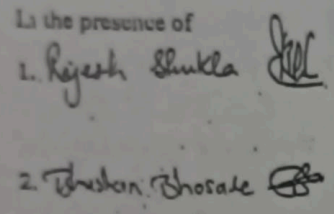 In the presence of
1. Rajesh Shukla
2. Bhushan Bhosale